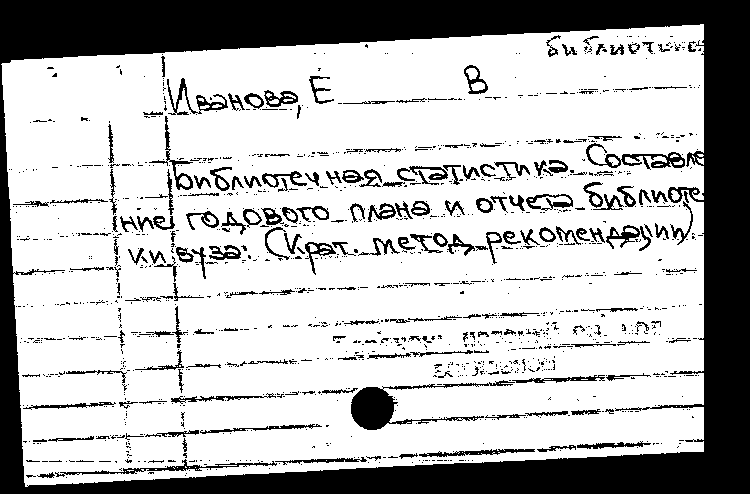 библиотека
Иванова, Е В
Библиотечная статистика. Составле
ние годового плана и отчета библиоте
ки вуза: (Крат. метод. рекомендации).